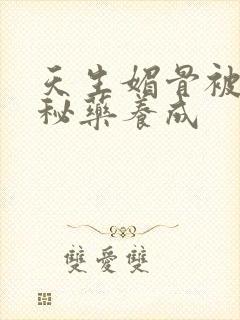 天生媚骨被
秘藥養成
雙愛雙